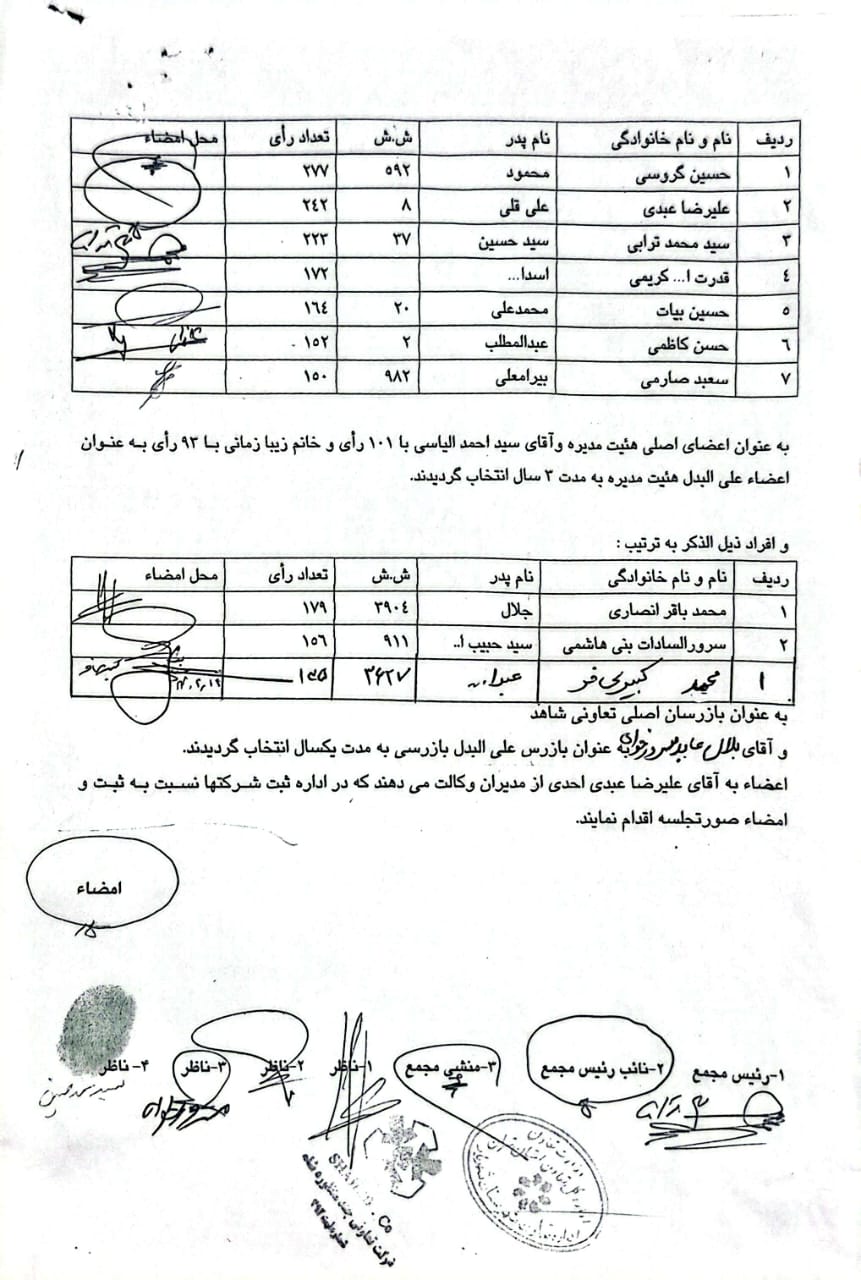 ردیف نام و نام خانوادگی نام پدر ش.ش تعداد رأی محل امضاء
۱ حسین گروسی محمود ۵۹۲ ۲۷۷
۲ علیرضا عبدی علی قلی ۸ ۲٤۲
۳ سید محمد ترابی سید حسین ۳۷ ۲۲۳
٤ قدرت ا... کریمی اسدا... ۱۷۲
۵ حسین بیات محمدعلی ۲۰ ۱٦٤
٦ حسن کاظمی عبدالمطلب ۲ ۱۵۲
۷ سعید صارمی بیرامعلی ۹۸۲ ۱۵۰
به عنوان اعضای اصلی هئیت مدیره وآقای سید احمد الیاسی با ۱۰۱ رأی و خانم زیبا زمانی با ۹۳ رأی به عنوان
اعضاء علی البدل هئیت مدیره به مدت ۳ سال انتخاب گردیدند.
و افراد ذیل الذکر به ترتیب :
ردیف نام و نام خانوادگی نام پدر ش.ش تعداد رأی محل امضاء
۱ محمد باقر انصاری جلال ۳۹۰٤ ۱۷۹
۲ سرورالسادات بنی هاشمی سید حبیب ا.. ۹۱۱ ۱۵٦
۱ محمد کبیری فر عبدا... ۳٦۲۷
به عنوان بازرسان اصلی تعاونی شاهد
و آقای عنوان بازرس علی البدل بازرسی به مدت یکسال انتخاب گردیدند.
اعضاء به آقای علیرضا عبدی احدی از مدیران وکالت می دهند که در اداره ثبت شرکتها نسبت به ثبت و
امضاء صورتجلسه اقدام نمایند.
امضاء
۱-رئیس مجمع ۲-نائب رئیس مجمع ۳-منشی مجمع ۱-ناظر ۲-ناظر ۳-ناظر ۴- ناظر